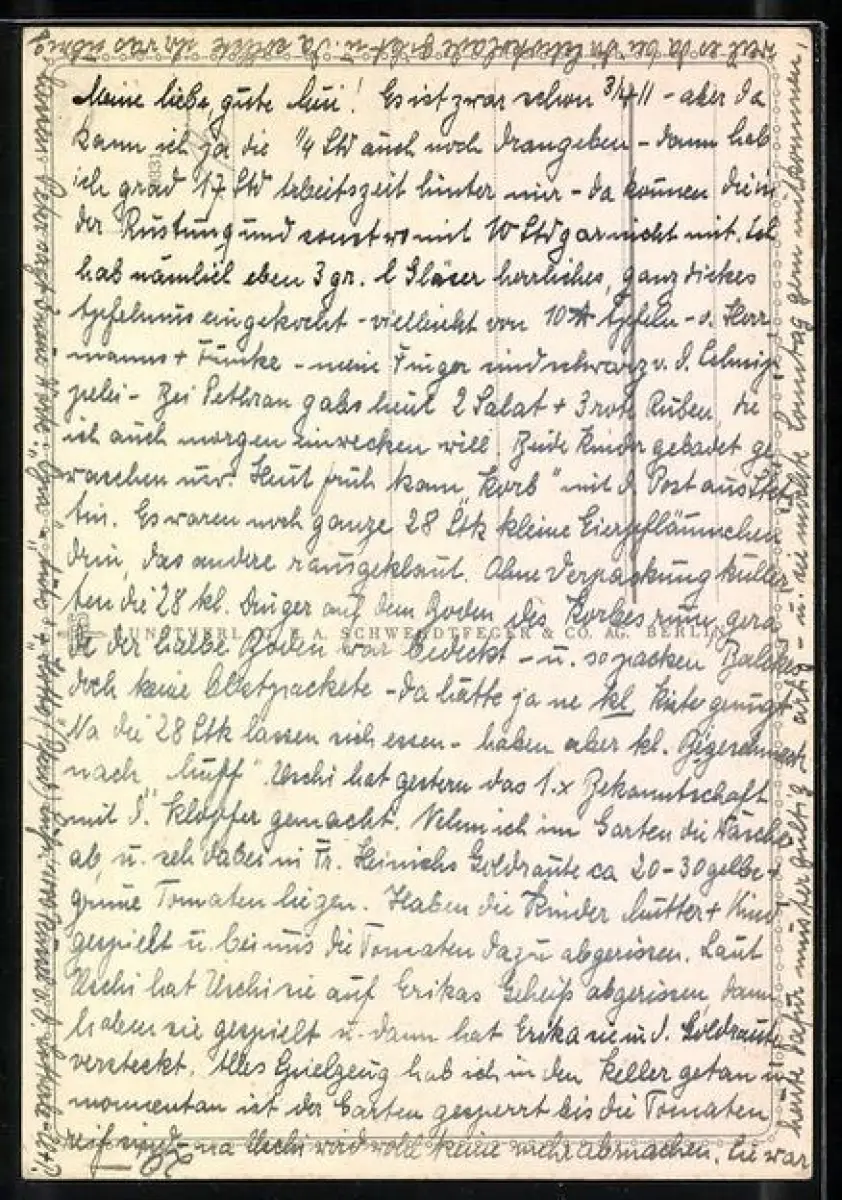 Meine liebe, gute Mui! Es ist zwar schon 3/4 11 - aber da
kann ich ja die 1/4 Std auch noch drangeben - dann hab
ich grad 17 Std Arbeitszeit hinter mir - da können die in
der Rüstung und sonstwo mit 10 Std gar nicht mit. Ich
hab nämlich eben 3 gr. l Gläser herrliches, ganz dickes
Apfelmus eingekocht - vielleicht von 10 Äpfeln - v. Herr
manns + Funke - meine Finger sind schwarz v. d. Schnip
pelei - Bei Pethran gabs heut 2 Salat + 3 rote Rüben, die
ich auch morgen einwecken will. Beide Kinder gebadet ge
waschen usw. Heut früh kam "Korb" mit d. Post aus Stet
tin. Es waren noch ganze 28 Stk kleine Eierpfläumchen
drin, das andere rausgeklaut. Ohne Verpackung kuller
ten die 28 kl. Dinger auf dem Boden des Korbes rum, gera
KUNSTVERLAG A. SCHWERDTFEGER & CO. AG. BERLIN
de der halbe Boden war bedeckt - u. so packen
doch keine Obstpackete - da hätte ja ne kl Kiste genügt
Na die 28 Stk lassen sich essen - haben aber kl.
nach "Muff" Uschi hat gestern das 1. x Bekanntschaft
mit d. "Klopfer gemacht. Nehm ich im Garten die Wäsche
ab, u. seh dabei in Fr. Heinichs Goldraute ca 20-30 gelbe +
grüne Tomaten liegen. Haben die Kinder Mutter + Kind
gespielt u. bei uns die Tomaten dazu abgerissen. Laut
Uschi hat Uschi sie auf Erikas Geheiß abgerissen, dann
haben sie gespielt u. dann hat Erika sie in d. Goldraute
versteckt. Alles Spielzeug hab ich in den Keller getan u.
momentan ist der Garten gesperrt bis die Tomaten
reif sind - na Uschi wird wohl keine mehr abmachen. Sie war
heute dafür mustergültig artig - u. sie möchte Sonntag gern mitkommen,
weil es da bei Schokolade gibt u. da sollte